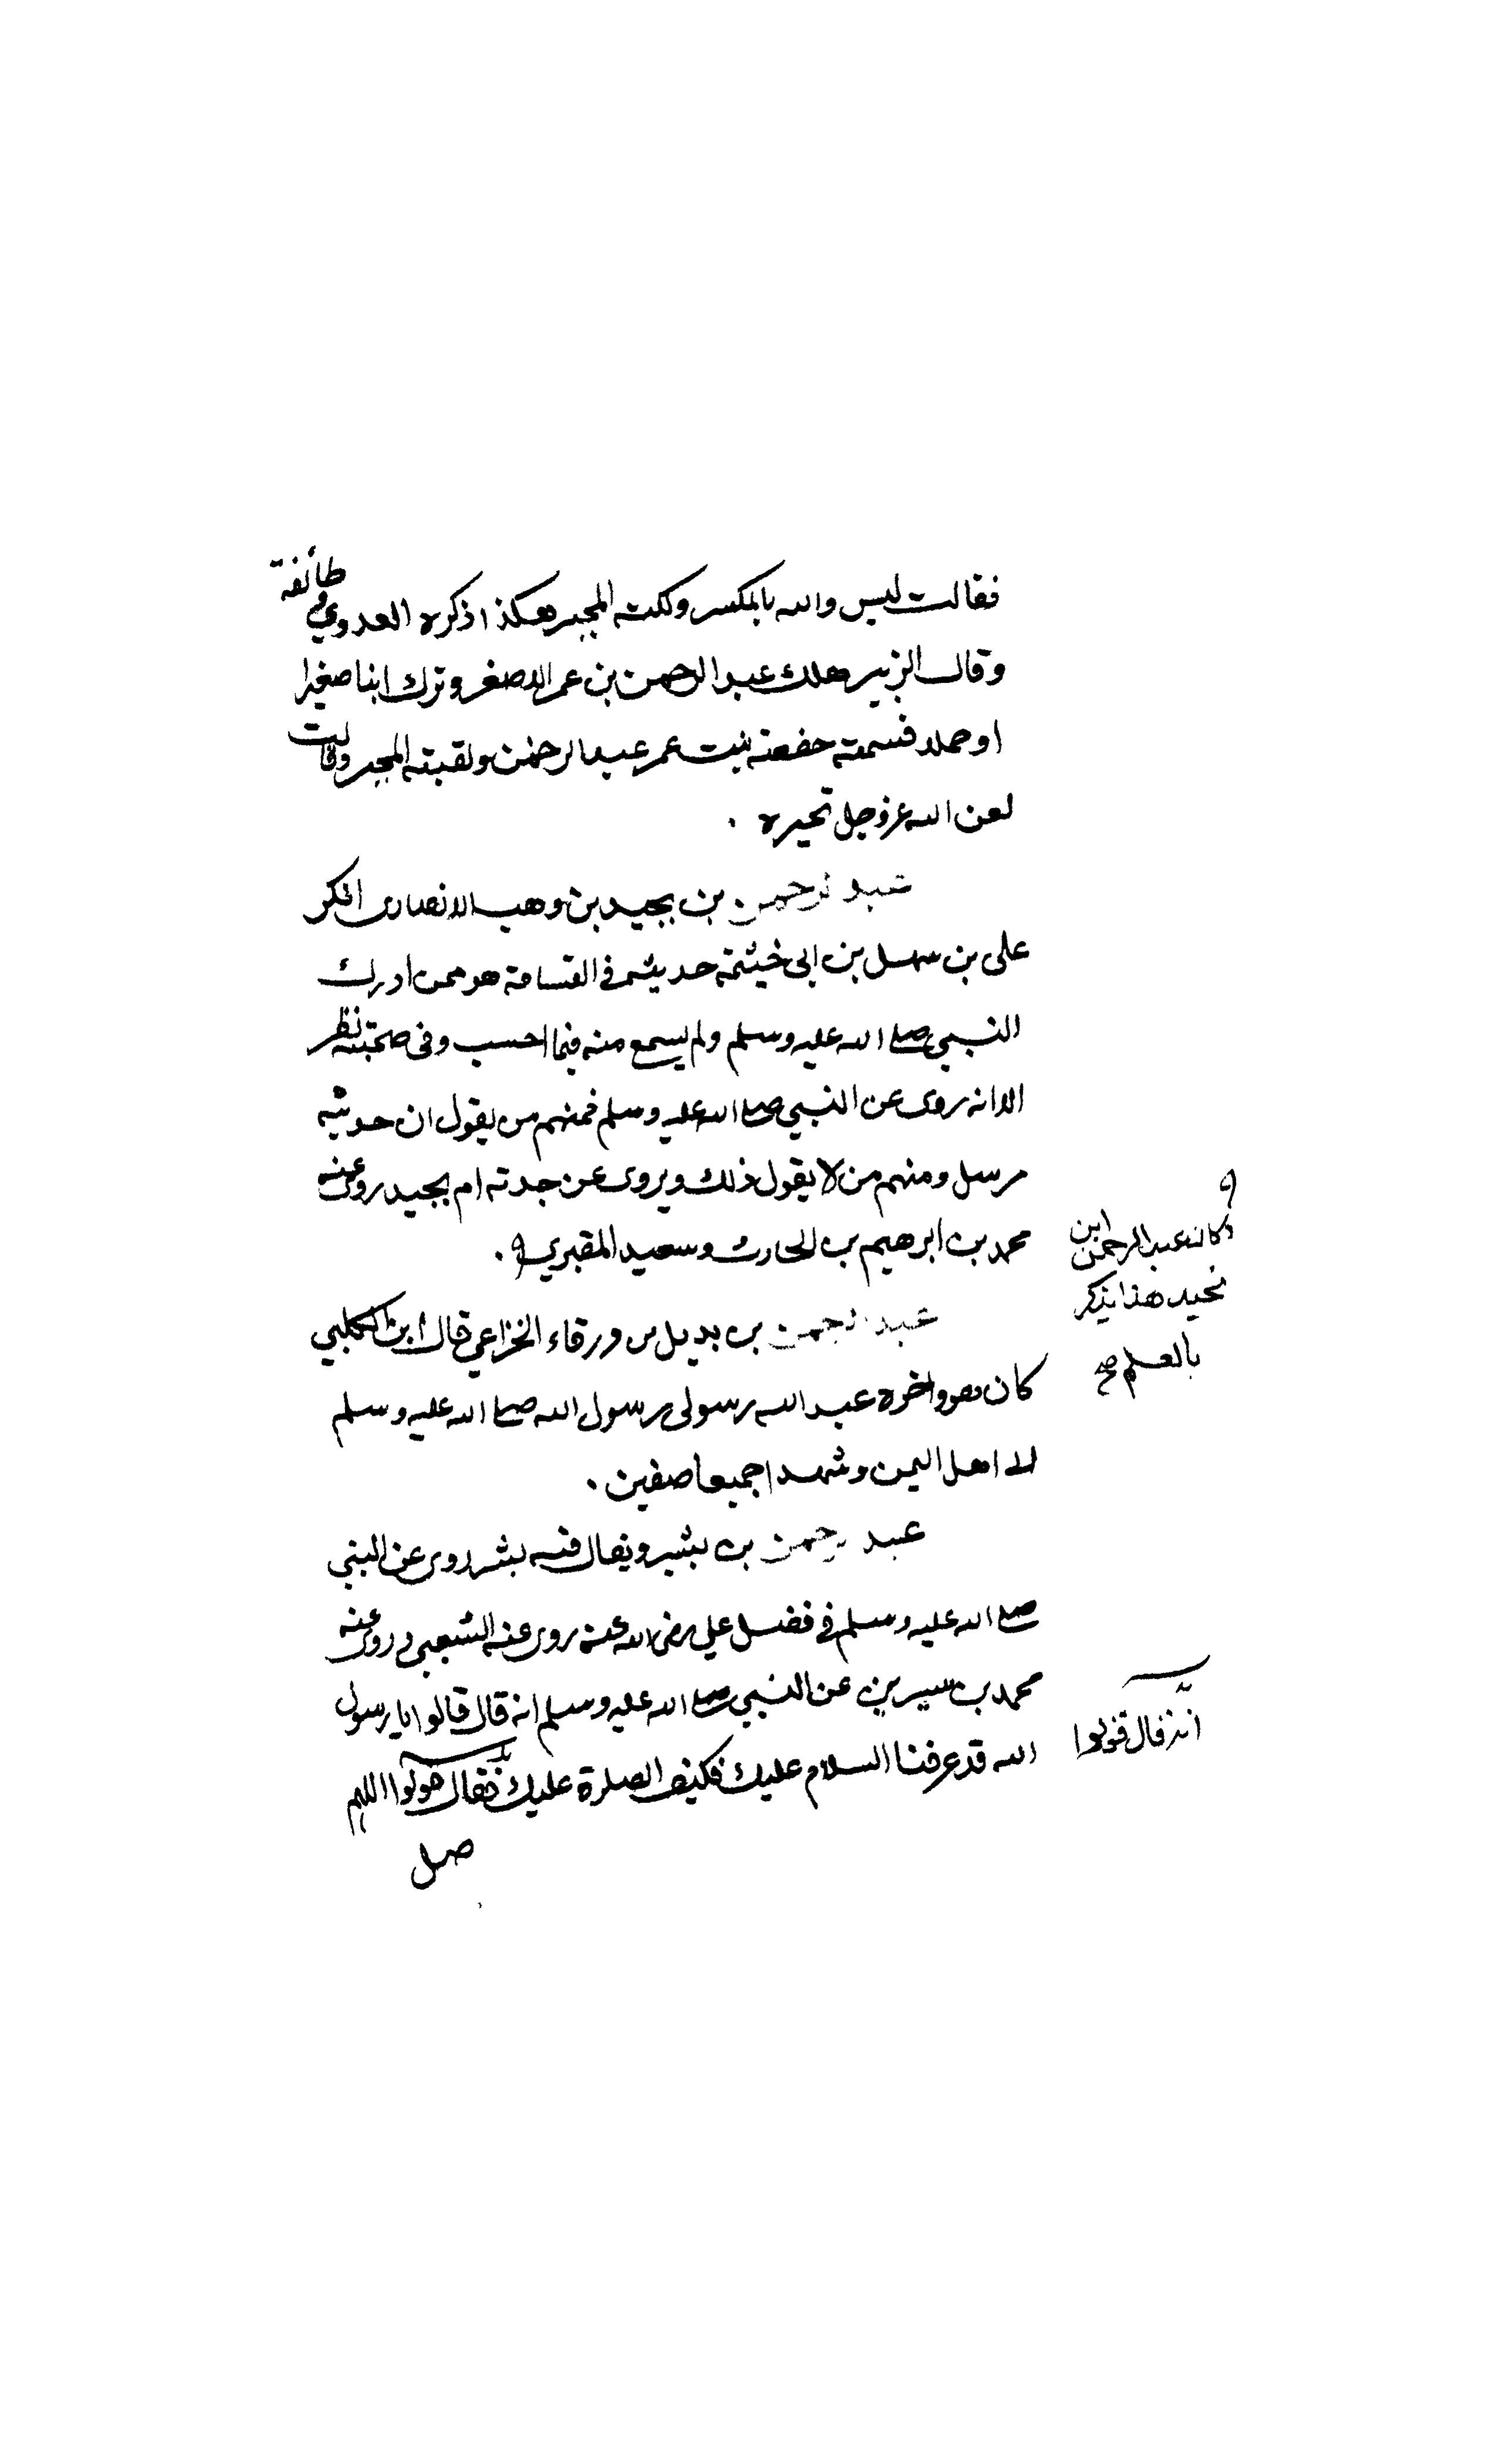 فقالت ليس والله بالمكسر ولكنه المجبر هكذا ذكره العدوي وطائفة
وقال الزبير هلك عبد الرحمن بن عمر الاصغر وترك ابنا صغيرا
او حملا فسمته حفصة بنت عمر عبد الرحمن ولقبته المجبر وقالت
لعن الله عز وجل تحيره
عبد الرحمن بن بجيد بن وهب الانصارى انكر
على بن سهل بن ابى خيثمة حديثه فى القسامة هو ممن ادرك
النبي صلى الله عليه وسلم ولم يسمع منه فيما احسب وفى صحبته نظر
الا انه روى عن النبي صلى الله عليه وسلم فمنهم من يقول ان حديثه
مرسل ومنهم من لا يقول ذلك ويروى عن جدته ام بجيد روى عنه
محمد بن ابرهيم بن الحارث وسعيد المقبري
وكان عبد الرحمن ابن
نجيد هذا يذكر
بالعلم صح
عبد الرحمن بن بديل بن ورقاء الخزاعي قال ابن الكلبي
كان هو واخوه عبد الله رسولى رسول الله صلى الله عليه وسلم
الى اهل اليمن وشهدا جميعا صفين
عبد الرحمن بن بشير ويقال فيه بشر روى عن النبي
صلى الله عليه وسلم فى فضل علي رضى الله عنه روى عنه الشعبي وروى عنه
محمد بن سيرين عن النبي صلى الله عليه وسلم انه قال قالوا يا رسول
الله قد عرفنا السلام عليك فكيف الصلوة عليك فقال قولوا اللهم
فقال قولوا
صل